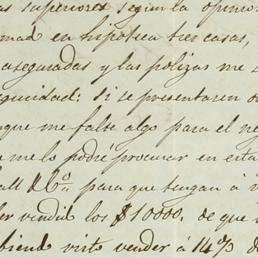 as superiores segun la opinion
mad en hipoteca tres casas,
aseguradas y las polizas me s
guidad: si se presentaren o
que me falte algo para el ne
o me lo podré procurar en esta
all & Co. para que tengan á
er vendid los $10000. de que
biend visto vender á 14% d